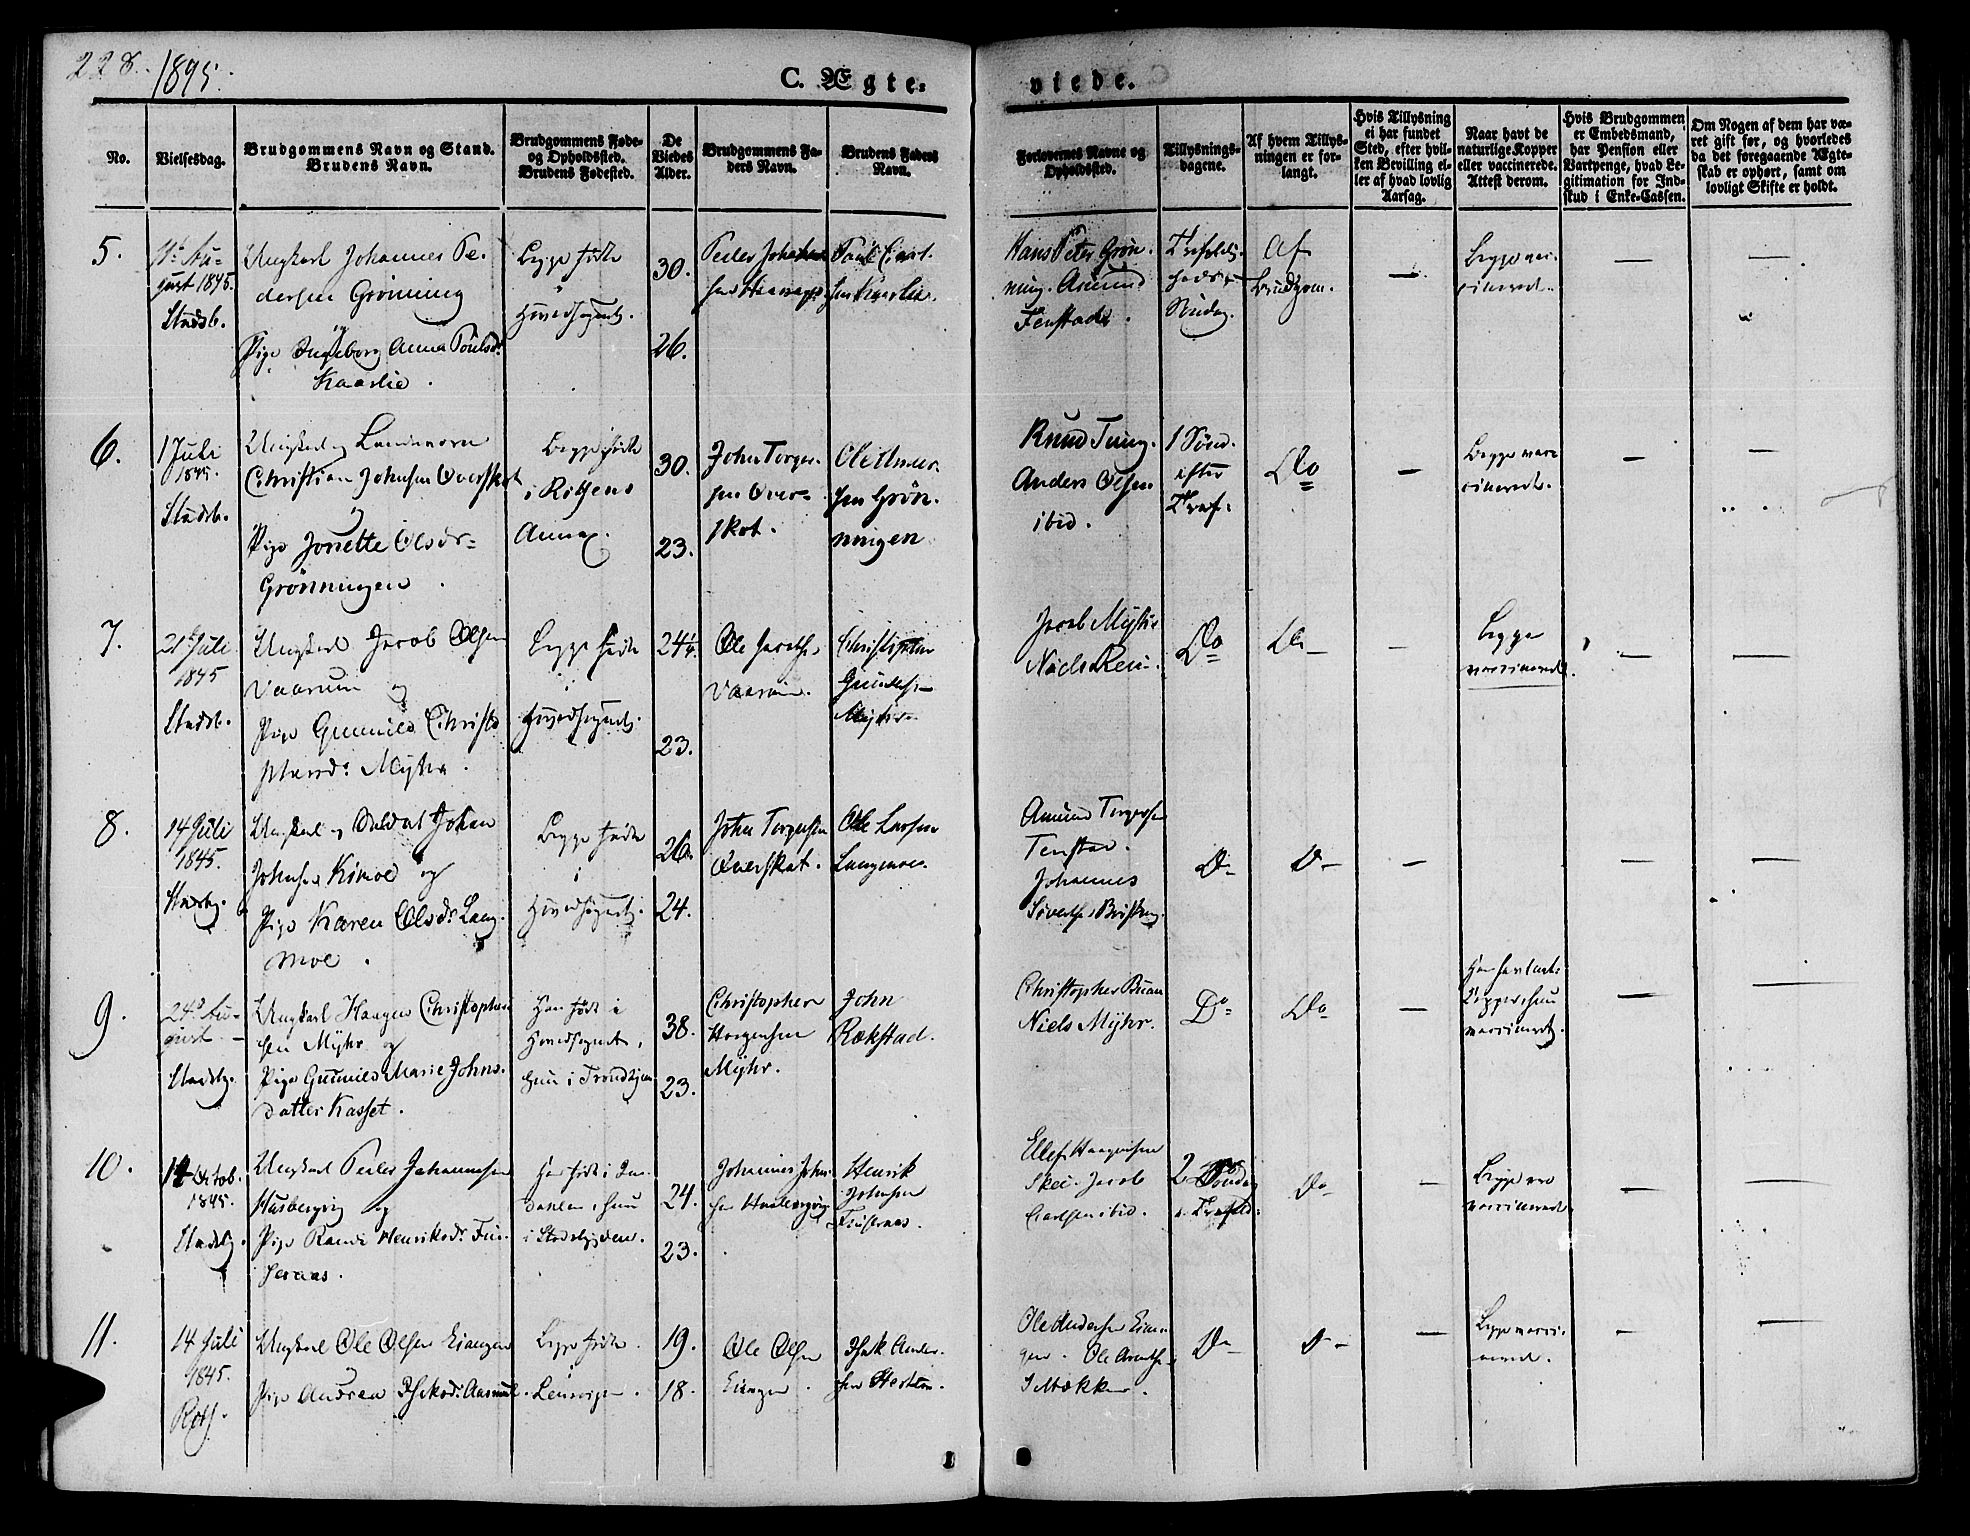 228. 1845.
C. Ægte-
viede.
No.
Vielsesdag.
Brudgommens Navn og Stand.
Brudens Navn.
Brudgommens Føde-
og Opholdssted.
Brudens Fødested.
De
Viedes
Alder.
Brudgommens Fa-
ders Navn.
Brudens Faders
Navn.
Forlovernes Navne og
Opholdssted.
Tillysnings-
dagene.
Af hvem Tillys-
ningen er for-
langt.
Hvis Tillysning
ei har fundet
Sted, efter hvil-
ken Bevilling el-
ler af hvad lovlig
Aarsag.
Naar havt de
naturlige Kopper
eller vaccinerede.
Attest derom.
Hvis Brudgommen
er Embedsmand,
har Pension eller
Vartpenge, hvad Le-
gitimation for Ind-
skud i Enke-Cassen.
Om Nogen af dem har væ-
ret gift før, og hvorledes
da det foregaaende Ægte-
skab er ophørt, samt om
lovligt Skifte er holdt.
5.
August 1845.
Stadsb.
Ungkarl Johannes Pe-
dersen Grønning
og
Pige Ingeborg Anna Poulsdr
Kaarlie.
Begge fødte
i
Hovedsognet.
30.
26.
Peder Johan
Poul
Kaarlie.
Hans Peter Grøn-
ning. Amund
Fenstad.
Trefoldig-
heds
Søndag.
Af
Brudgom.
Begge vac-
cinerede.
6.
1 Juli
1845.
Stadsb.
Ungkarl og Landeværn
Christian Johnsen Overskot
og
Pige Jonette Olsdr
Grønningen.
Begge fødte
i Rissens
Annex.
30.
23.
John Torger-
sen Over-
skot.
Ole
sen Grøn-
ningen
Knud Tung.
Anders Olsen
ibid.
1 Sønd.
efter
Tref.
Do
Begge vac-
cinerede.
7.
21 Juli
1845
Stadsb.
Ungkarl Jacob Olsen
Vaarum og
Pige Gunnild Christo-
phersdr Myhr.
Begge fødte
i
Hovedsognet.
24½
23.
Ole
Vaarum.
Christopher
Myhr.
Jacob
Niels
Do
Do
Begge
vaccinerede.
8.
14 Juli
1845.
Stadsby.
Ungkarl og Soldat Johan
Johnsen Kimoe og
Pige Karen Olsdr Lang-
moe.
Begge fødte
i
Hovedsognet.
26.
24.
John Torgersen
Overskot.
Ole Larsen
Langmoe.
Amund Torgersen
Fenstad.
Johannes
Do
Do
9.
24d Au-
gust
Stadsby.
Ungkarl Haagen Christopher-
sen Myhr og
Pige Gunnild Marie Johns-
datter Kasset.
Han født i
Hovedsognet,
hun i Trondhjem
38.
23.
Christopher
Haagensen
Myhr.
John
Rækstad.
Christopher Buan
Niels Myhr.
Do
Do
Han havt
Kopper, hun
vaccineret.
10.
Octob.
1845.
Stadsby.
Ungkarl Peder Johannesen
Husbergvig og
Pige Randi Henriksdr Fin-
seraas.
Han født i
dalen, hun
i Stadsbygden.
24.
23.
Johannes John-
sen Husbergvig
Henrik
Johnsen
Finseraas.
Ellef Haagensen
Skei. Jacob
Carlsen ibid.
2 Søndag
e. Trefold.
Do
Begge
vaccinerede.
11.
14 Juli
1845.
Ungkarl Ole Olsen Eiangen
Pige Andrea Isaksdr
Begge fødte
i
Lensvigen.
19.
18.
Ole Olsen
Eiangen.
Isak Ander-
sen
Ole Andersen Eian-
gen. Ole
Do
Do
Begge vacci-
nerede.